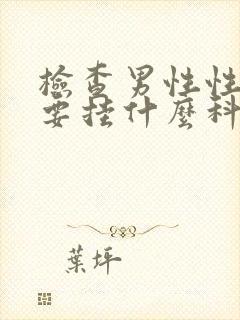 檢查男性性
要挂什麼科
葉坪